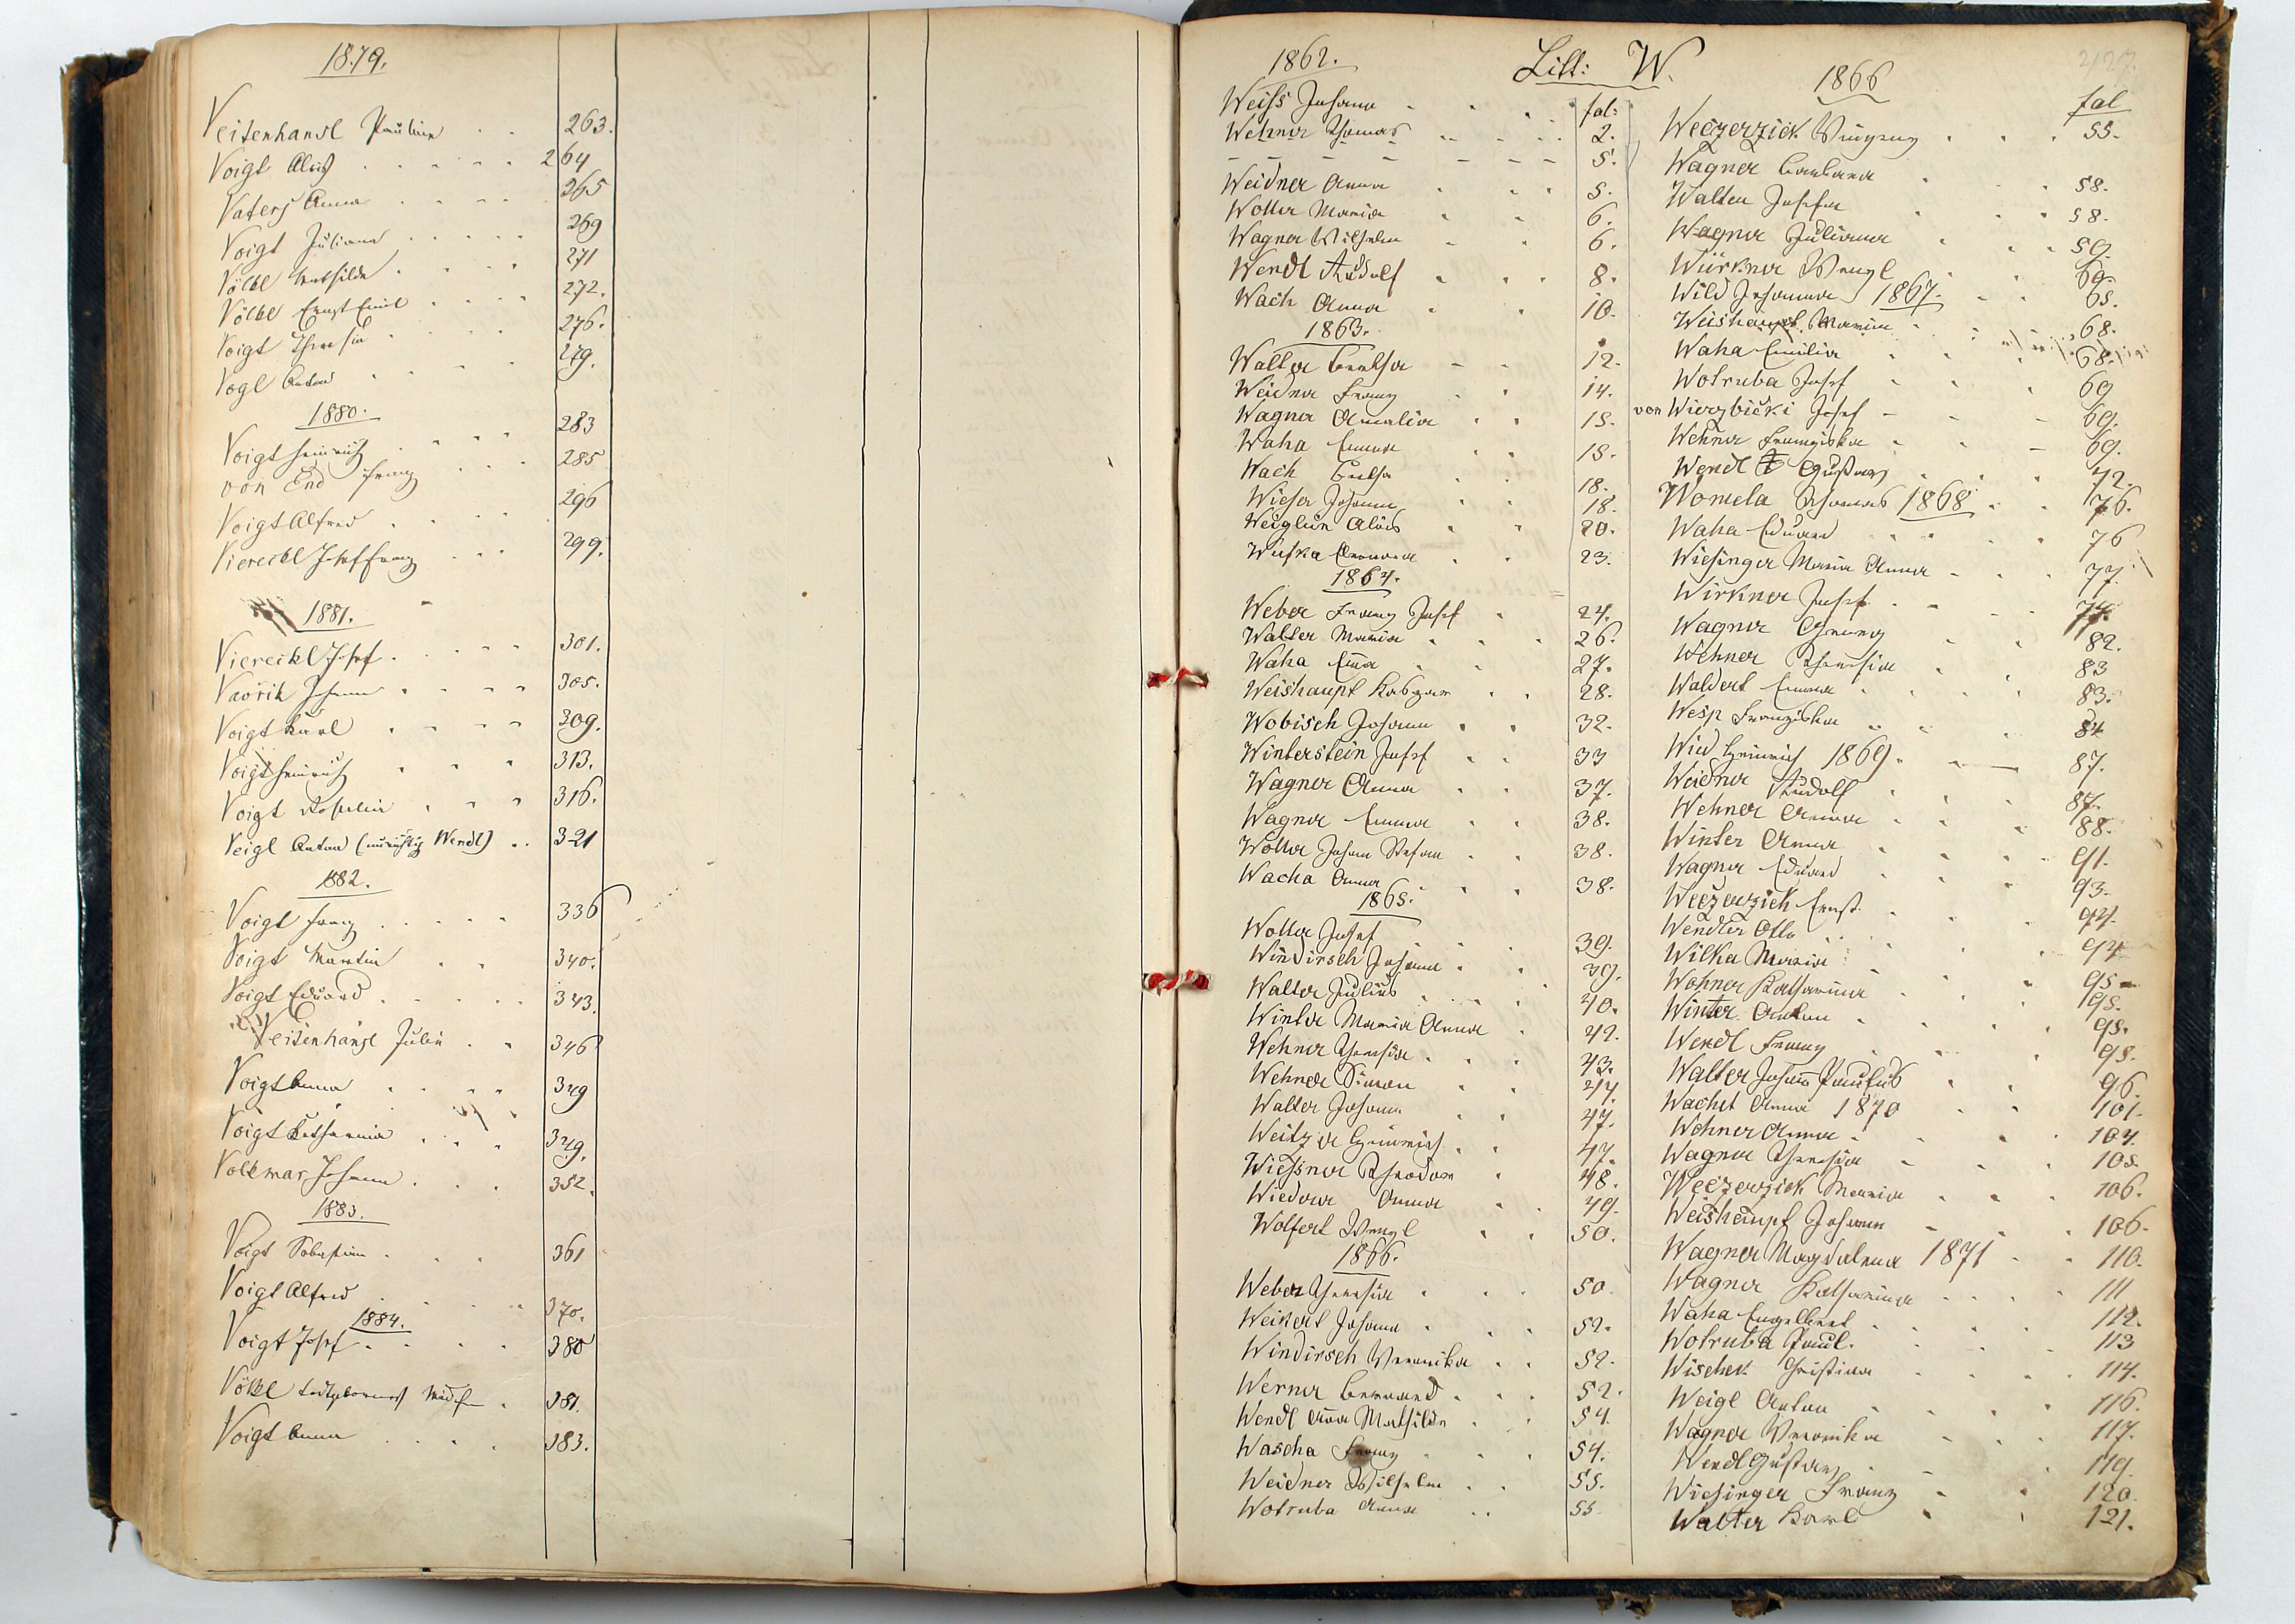 1879.
Veitenhansl Pauline 263.
Voigt Alois 264
Vaters Anna 265
Voigt Juliana 269
Völkl Mathilde 271
Völkl Ernst Emil 272.
Voigt Theresia 276.
Vogl Anton 279.
1880.
Voigt Heinrich 283
von End Franz 285
Voigt Alfred 296
Viereckl Josef Franz 299.
1881.
Viereckl Josef 301.
Vavřik Johann 305.
Voigt Karl 309.
Voigt Heinrich 313.
Voigt Rosalia 316.
Veigl Anton (unrichtig Wendl) 321
1882.
Voigt Franz 336
Voigt Martin 340.
Voigt Eduard 343.
Veitenhansl Julie 346
Voigt Anna 349
Voigt Katharina 349.
Volkmar Johann 352.
1883.
Voigt Sebastian 361
Voigt Alfred 370.
1884.
Voigt Josef 380
Völkl todtgebornes Mädchen 381.
Voigt Anna 383.
Litt: W.
1862.
fol:
Weiss Johann 2.
Wehner Thomas 5.
Weidner Anna 5.
Woller Maria 6.
Wagner Wilhelm 6.
Wendl Rudolf 8.
Wach Anna 10.
1863.
Walter Bertha 12.
Weidner Franz 14.
Wagner Amalia 15.
Waha Emma 18.
Wach Bertha 18.
Wieser Johann 18.
Weiglein Alois 20.
23.
1864.
Weber Franz Josef 24.
Walter Maria 26.
Waha Ema 27.
Weishaupt Kaspar 28.
Wobisch Johann 32.
Winterstein Josef 33
Wagner Anna 37.
Wagner Emma 38.
Woller Johann Stefan 38.
Wacha Anna 38.
1865.
Woller Josef 39.
Windirsch Johann 39.
Walter Julius 40.
Winter Maria Anna 42.
Wehner Theresia 43.
Wehner Simon 44.
Walter Johann 47.
Weitzer Heinrich 47.
Wiessner Theodor 48.
Anna 49.
Wolfert Wenzl 50.
1866.
Weber Theresia 50.
Weikert Johann 52.
Windirsch Veronika 52.
Werner Bernard 52.
Wendl Ana Mathilde 54.
Wascha Franz 54.
Weidner Wilhelm 55.
Wotruba Anna 55
1866
fol
Weczerzick Vinzenz 55.
Wagner Barbara 58.
Walter Josefa 58.
Wagner Juliana 59.
Würkner Wenzl
Wild Johanna 65.
1867.
Weishaupt Maria 68.
Waha Emilia 68.
Wotruba Josef 69
von Wierzbicki Josef 69.
Wehner Franziska 69.
Wendl Gustav 72.
1868
Womela Thomas 76.
Waha Eduard 76
Wiesinger Maria Anna 77.
Wirkner Josef
Wagner Georg 82.
Wehner Theresia 83
Waldert Emma 83.
Wesp Franziska 84
1869.
Wied Heinrich 87.
Weidner Rudolf 87.
Wehner Anna 88.
Winter Anna 91.
Wagner Eduard 93.
Weczerzick Ernst 94.
Wendler Otto 94
Wilka Maria 95
Wohner Katharina 95.
Winter Anton 95.
Wendl Franz 95.
Walter Johann Paulus 96.
1870
Wachet Anna 101.
Wehner Anna 104.
Wagner Theresia 105.
Weczerzick Maria 106.
Weishaupt Johann 106.
1871
Wagner Magdalena 110.
Wagner Katharina 111
Waha Engelbert 112.
Wotruba Paul 113
Wischek Christina 114.
Weigl Anton 116.
Wagner Veronika 117.
Wendl Gustav 119.
Wiesinger Franz 120.
Walter Karl 121.